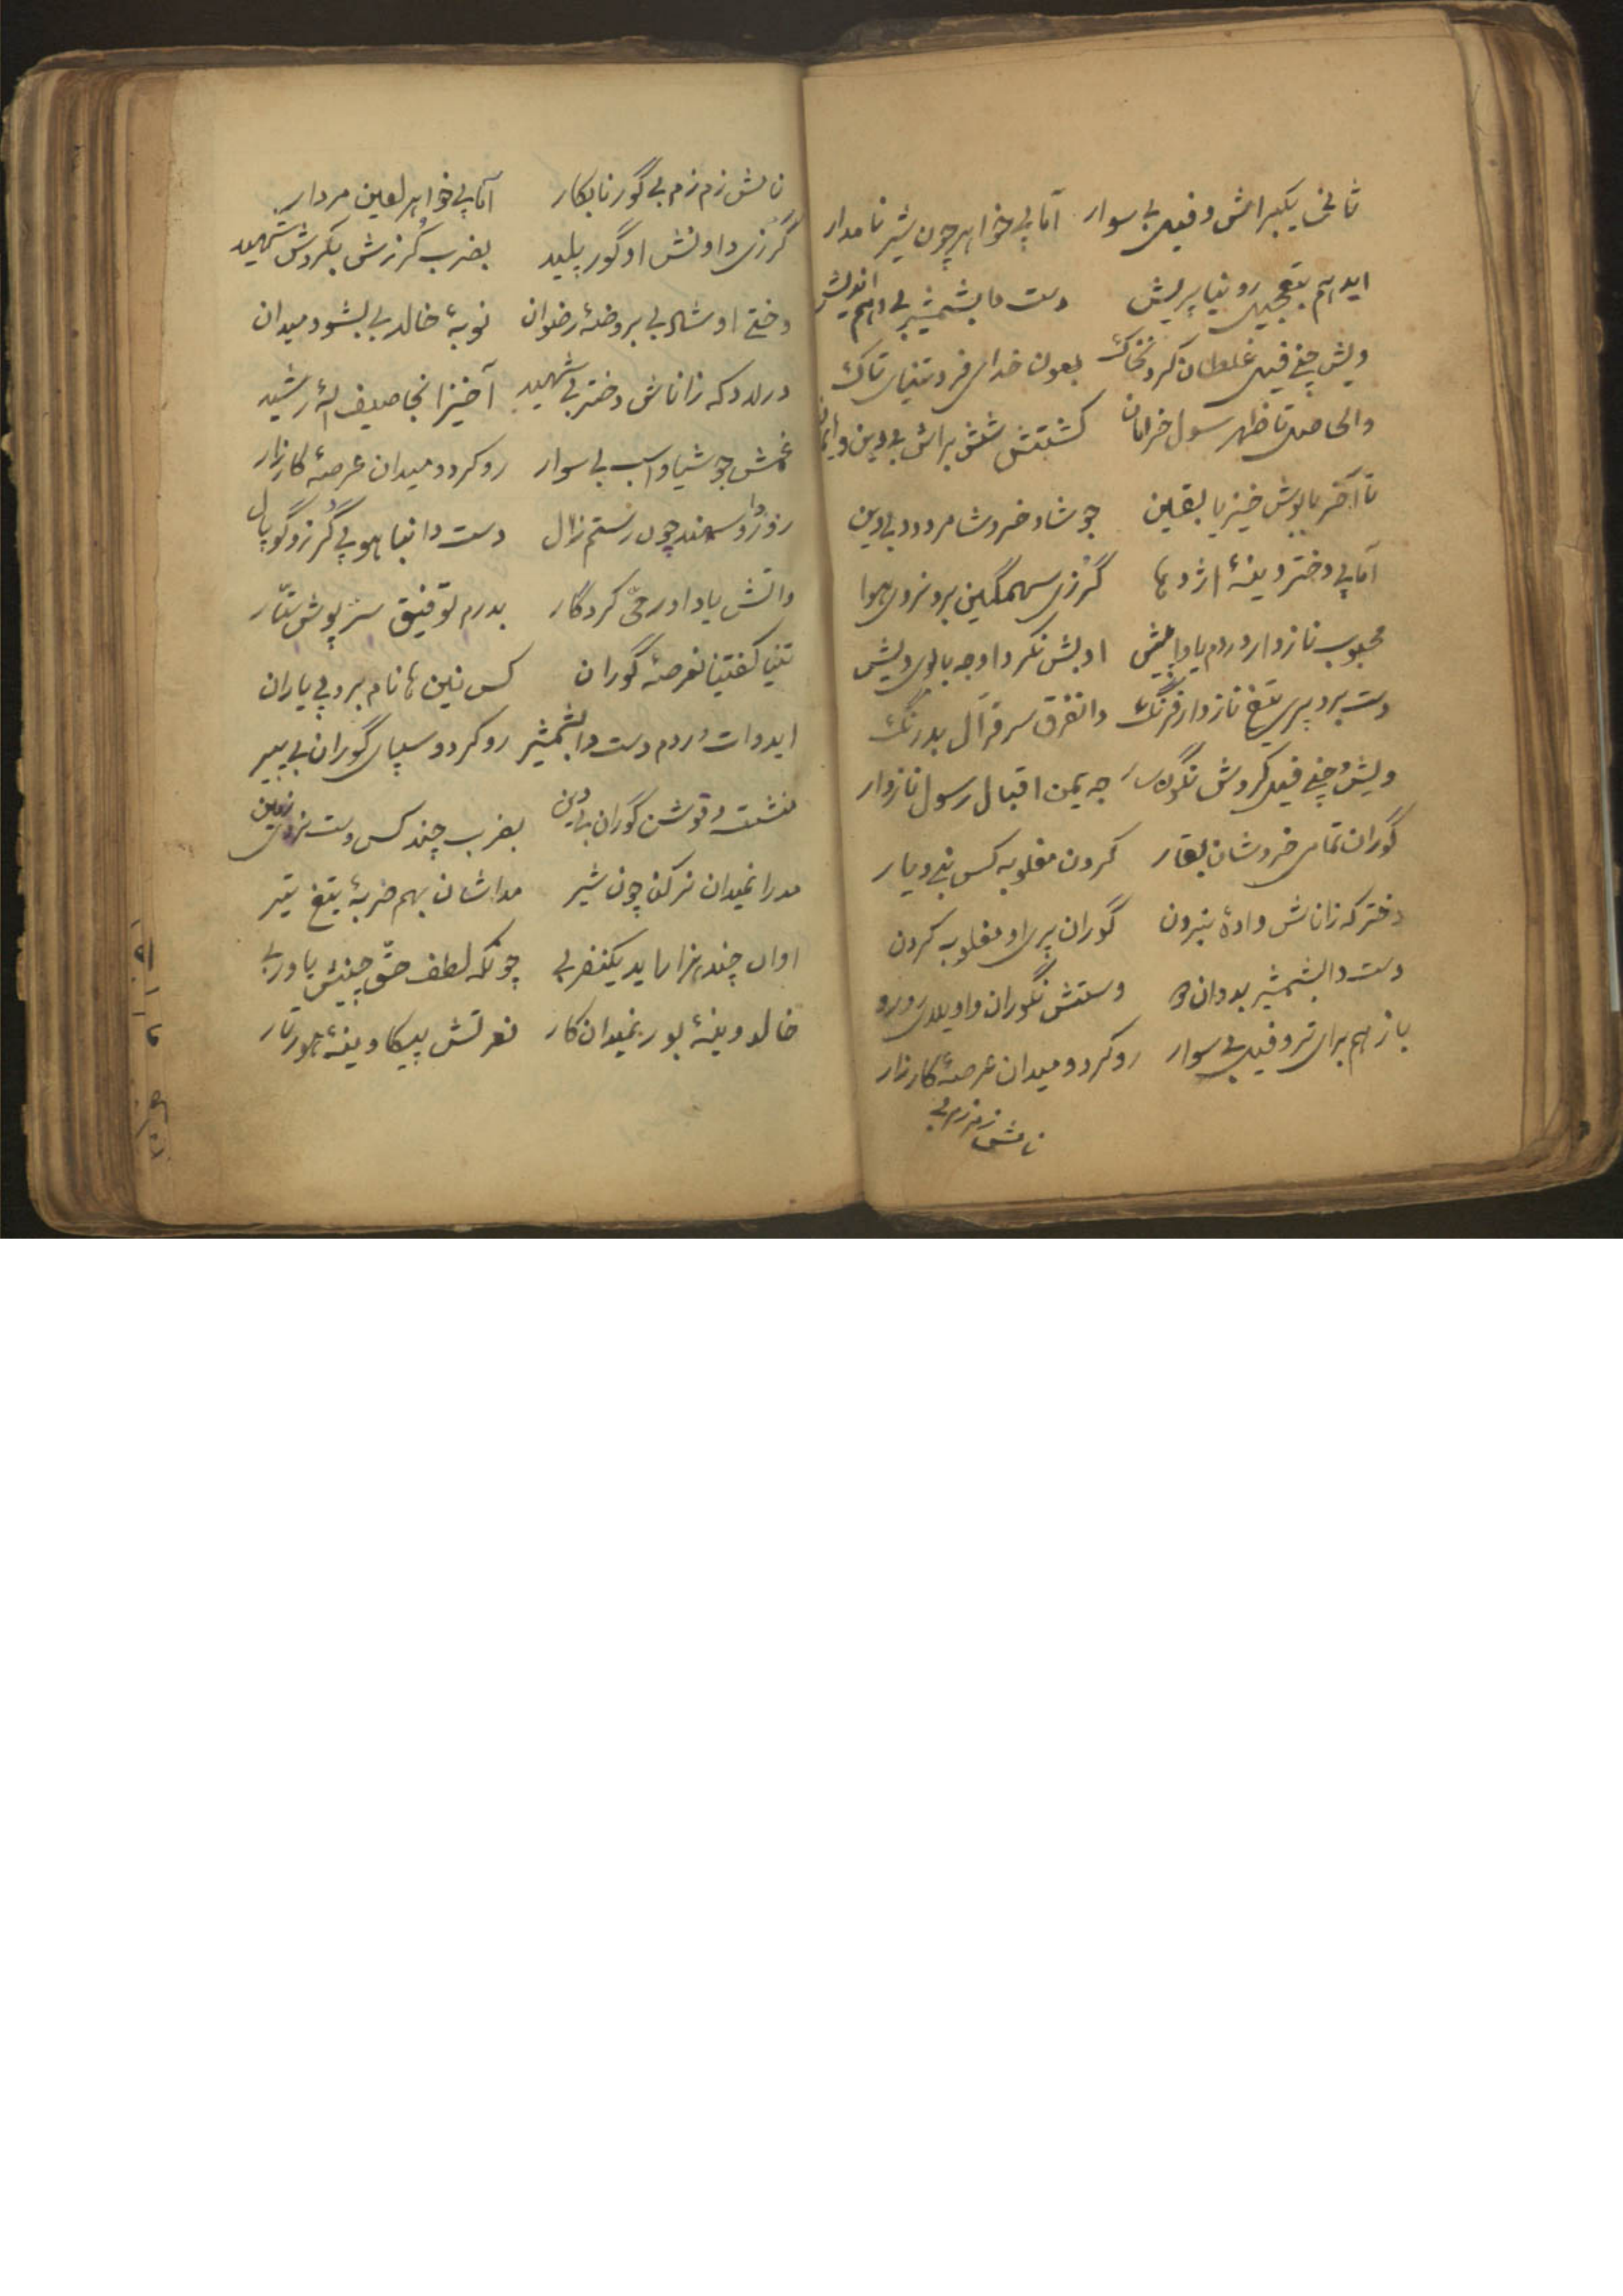 ثانی یکبرانش و فیل بی سوار آمابی خواهر چون شیر نامدار
اید هم بتعجیل رو نیا پریش دست دا بشمشیر بی وهم اندیش
ویش چنی فیل غلطان کرد نخاک بعون خدای فرد تنیای تاک
والحاصل تا ظهر سول خرامان کشتش شش براش بی دین و ایمان
تا آخر بالوش خیزیا بقین جوشاد خروشا مردود بیدین
آمابی دختر وینهٔ اژدها گرزی سهمگین برو نردی هوا
محبوب نازدار دردم یاواپیش او بش نکرد اوجه بالای ویش
دست برد پری تیغ نازدار فرنگ دا نفرق سر قرال بدرنگ
ویش و چنی فیل کردش نگونسار جه یمن اقبال رسول نازدار
گوران تمامی خروشان بقار کردن مغلوبه کس نیی دیار
دختر که زاناش وادهٔ نبردن گوران پری او مغلوبه کردن
دست دا بشمشیر بدوان وستش نگوران واویلای رورو
باز هم برای نرو فیل بی سوار رو کرد و میدان عرصهٔ کارزار
نامش زم زم بی
نامش زم زم بی گور نابکار آمابی خواهر لعین مردار
گرزی داونش او گور پلید بضرب گرزش بکردش شهید
وختی او شاد بی بروضهٔ رضوان نوبهٔ خالد بی بشو و میدان
درلدد که زاناش دختر بی شهید آخیزا نجا صیف الله رشید
غمش جوشیا و اسب بی سوار رو کرد و میدان عرصهٔ کارزار
زور دا و سمند چون رستم زال دست دا نیا هو بی گرز و گوپال
واتش یا داور حی کردگار بدرم توفیق سر پوش ستار
تنیا کفتیا نعرصهٔ گوران کس نین نام برو پی یاران
اید وات دردم دست دا بشمشیر رو کرد و سپای گوران بی پیر
نشت و قوشن گوران بیدین بضرب چند کس وست نروی زمین
مدرا نمیدان نرکن چون شیر مداشان بهم ضربهٔ تیغ تیر
اوان چند هزار اید یکنفر بی چونکه لطف حق چنیش یاور بی
خالد وینهٔ بور نمیدان کار نعرتش پیکا وینهٔ هور تار